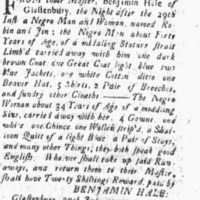 From their Master, Benjamin Hale of
Glastenbury, the Night after the 29th
Inst a Negro Man and Woman, named Ro-
bin and Jin; the Negro Man about Forty
Years of Age, of a midling Stature strait
Limb'd carried away with him one dark
brown Coat one Great Coat light blue two
Blue Jackets, one white Cotton ditto one
Beaver Hat, 5 Shirts, 2 Pair of Breeches,
and sundry other Cloaths —— The Negro
Woman about 34 Years of Age of a middling
Size, carried away with her, 4 Gowns, one
whole one Chinee one Wollen strip'd, a
Quilt of a light Blue a Pair of Stays,
and many other Things; they both speak good
English. Whoever shall take up said Run-
aways, and return them to their Master,
shall have Twenty Shillings Reward, paid by
BENJAMIN HALE.
Glastenbury